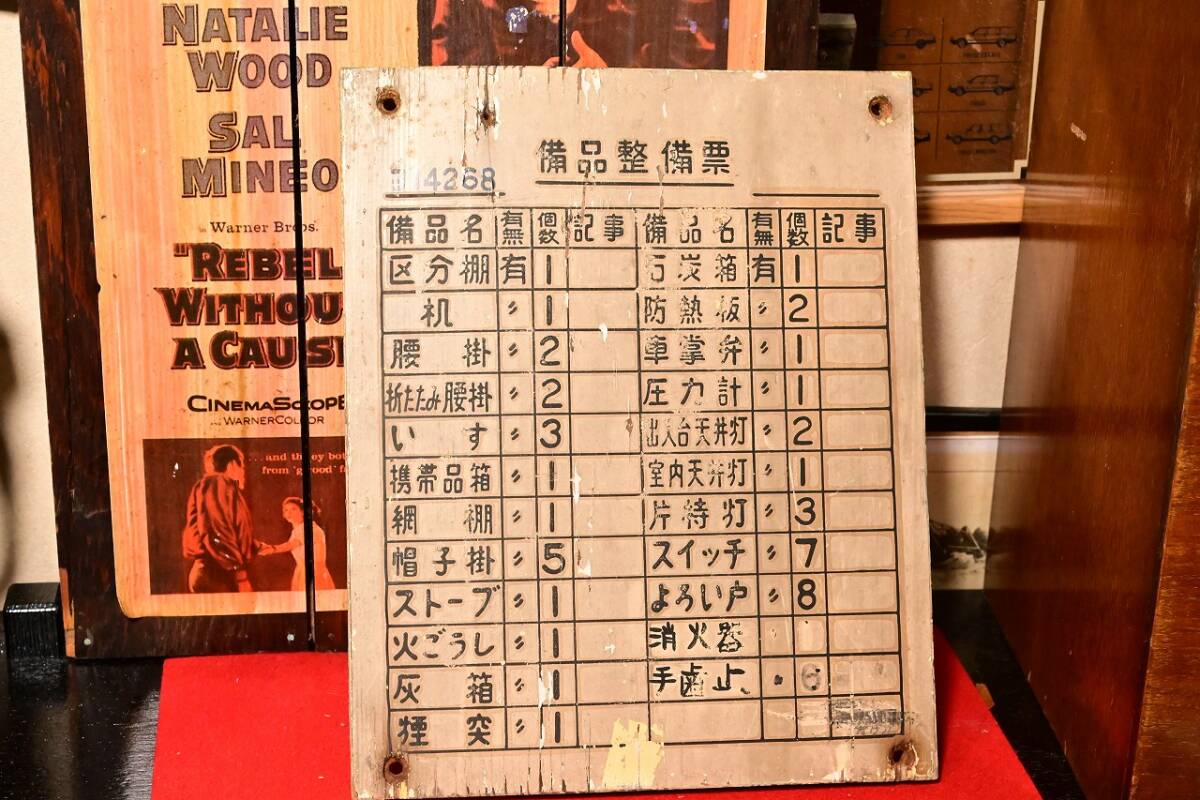 NATALIE
WOOD
SAL
MINEO
Warner Bros.
"REBEL
WITHOU
A CAUS
CINEMASCOPE
WARNERCOLOR
...and they bot
from 'good' f
備品整備票
14268
備品名 有無 個数 記事 備品名 有無 個数 記事
区分棚 有 1 石炭箱 有 1
机 〃 1 防熱板 〃 2
腰掛 〃 2 車掌弁 〃 1
折たたみ腰掛 〃 2 圧力計 〃 1
いす 〃 3 出入台天井灯 〃 2
携帯品箱 〃 1 室内天井灯 〃 1
網棚 〃 1 片持灯 〃 3
帽子掛 〃 5 スイッチ 〃 7
ストーブ 〃 1 よろい戸 〃 8
火ごうし 〃 1 消火器
灰箱 〃 1 手歯止
煙突 〃 1